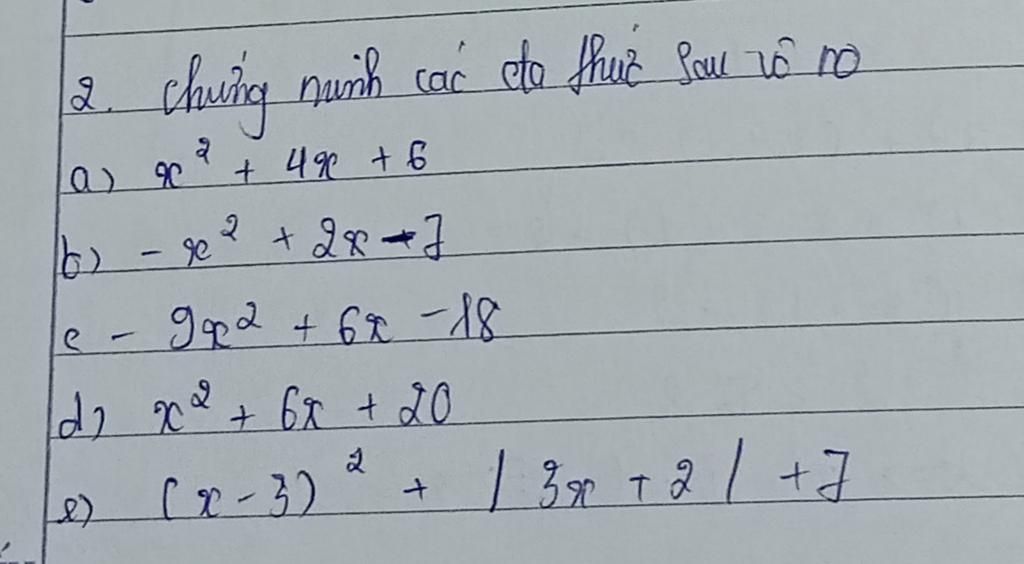 2. Chứng minh các đa thức sau vô no
a) x² + 4x + 6
b) - x² + 2x - 7
c - 9x² + 6x - 18
d) x² + 6x + 20
e) (x - 3)² + | 3x + 2 | + 7